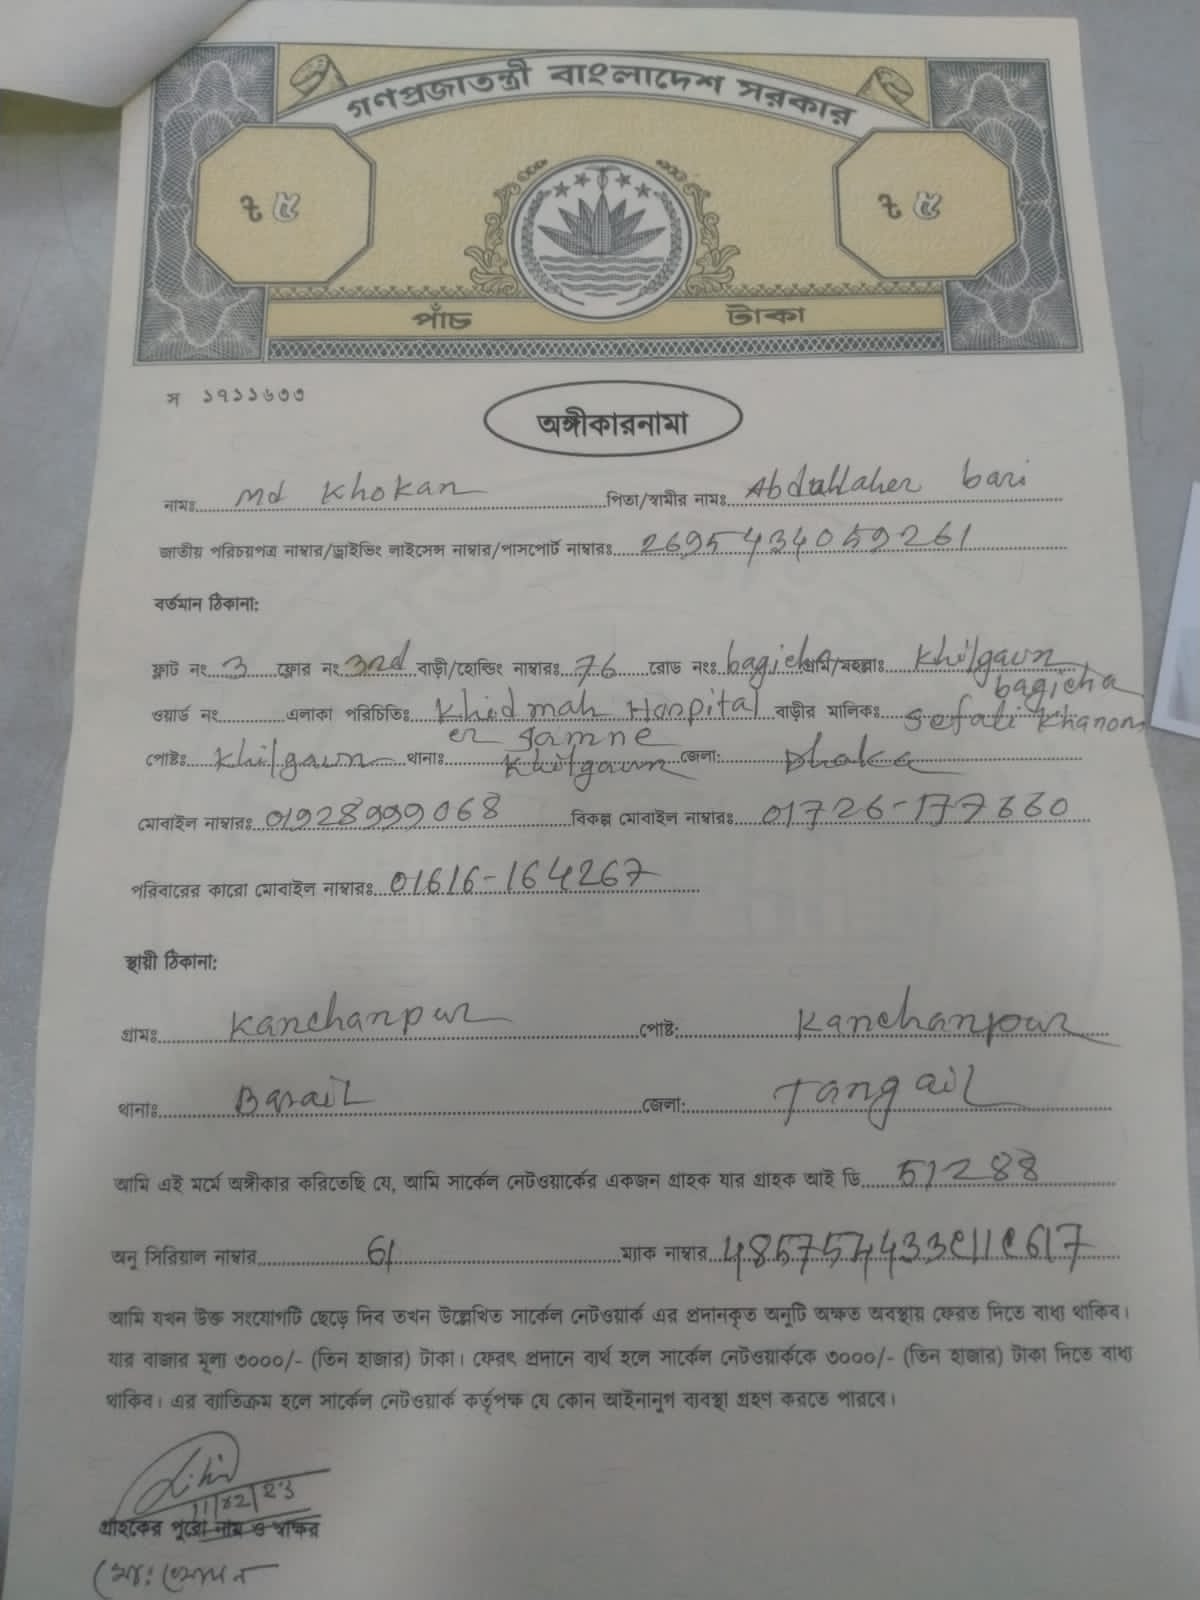 গণপ্রজাতন্ত্রী বাংলাদেশ সরকার
৳ ৫ ৳ ৫
পাঁচ টাকা
স ১৭১১৬৩৩
অঙ্গীকারনামা
নামঃ Md Khokan পিতা/স্বামীর নামঃ Abdullaher bari
জাতীয় পরিচয়পত্র নাম্বার/ড্রাইভিং লাইসেন্স নাম্বার/পাসপোর্ট নাম্বারঃ 2695434059261
বর্তমান ঠিকানা:
ফ্লাট নং 3 ফ্লোর নং 3rd বাড়ী/হোল্ডিং নাম্বারঃ 76 রোড নংঃ bagicha গ্রাম/মহল্লাঃ Khilgaun bagicha
ওয়ার্ড নং এলাকা পরিচিতিঃ Khidmah Hospital er samne বাড়ীর মালিকঃ Sefali Khanom
পোষ্টঃ Khilgaun থানাঃ Khilgaun জেলা: Dhaka
মোবাইল নাম্বারঃ 01928999068 বিকল্প মোবাইল নাম্বারঃ 01726-177660
পরিবারের কারো মোবাইল নাম্বারঃ 01616-164267
স্থায়ী ঠিকানা:
গ্রামঃ Kanchanpur পোষ্ট: Kanchanpour
থানাঃ Basail জেলা: Tangail
আমি এই মর্মে অঙ্গীকার করিতেছি যে, আমি সার্কেল নেটওয়ার্কের একজন গ্রাহক যার গ্রাহক আই ডি 51288
অনু সিরিয়াল নাম্বার 61 ম্যাক নাম্বার
আমি যখন উক্ত সংযোগটি ছেড়ে দিব তখন উল্লেখিত সার্কেল নেটওয়ার্ক এর প্রদানকৃত অনুটি অক্ষত অবস্থায় ফেরত দিতে বাধ্য থাকিব।
যার বাজার মূল্য ৩০০০/- (তিন হাজার) টাকা। ফেরৎ প্রদানে ব্যর্থ হলে সার্কেল নেটওয়ার্ককে ৩০০০/- (তিন হাজার) টাকা দিতে বাধ্য
থাকিব। এর ব্যাতিক্রম হলে সার্কেল নেটওয়ার্ক কর্তৃপক্ষ যে কোন আইনানুগ ব্যবস্থা গ্রহণ করতে পারবে।
11/02/23
গ্রাহকের পুরো নাম ও স্বাক্ষর